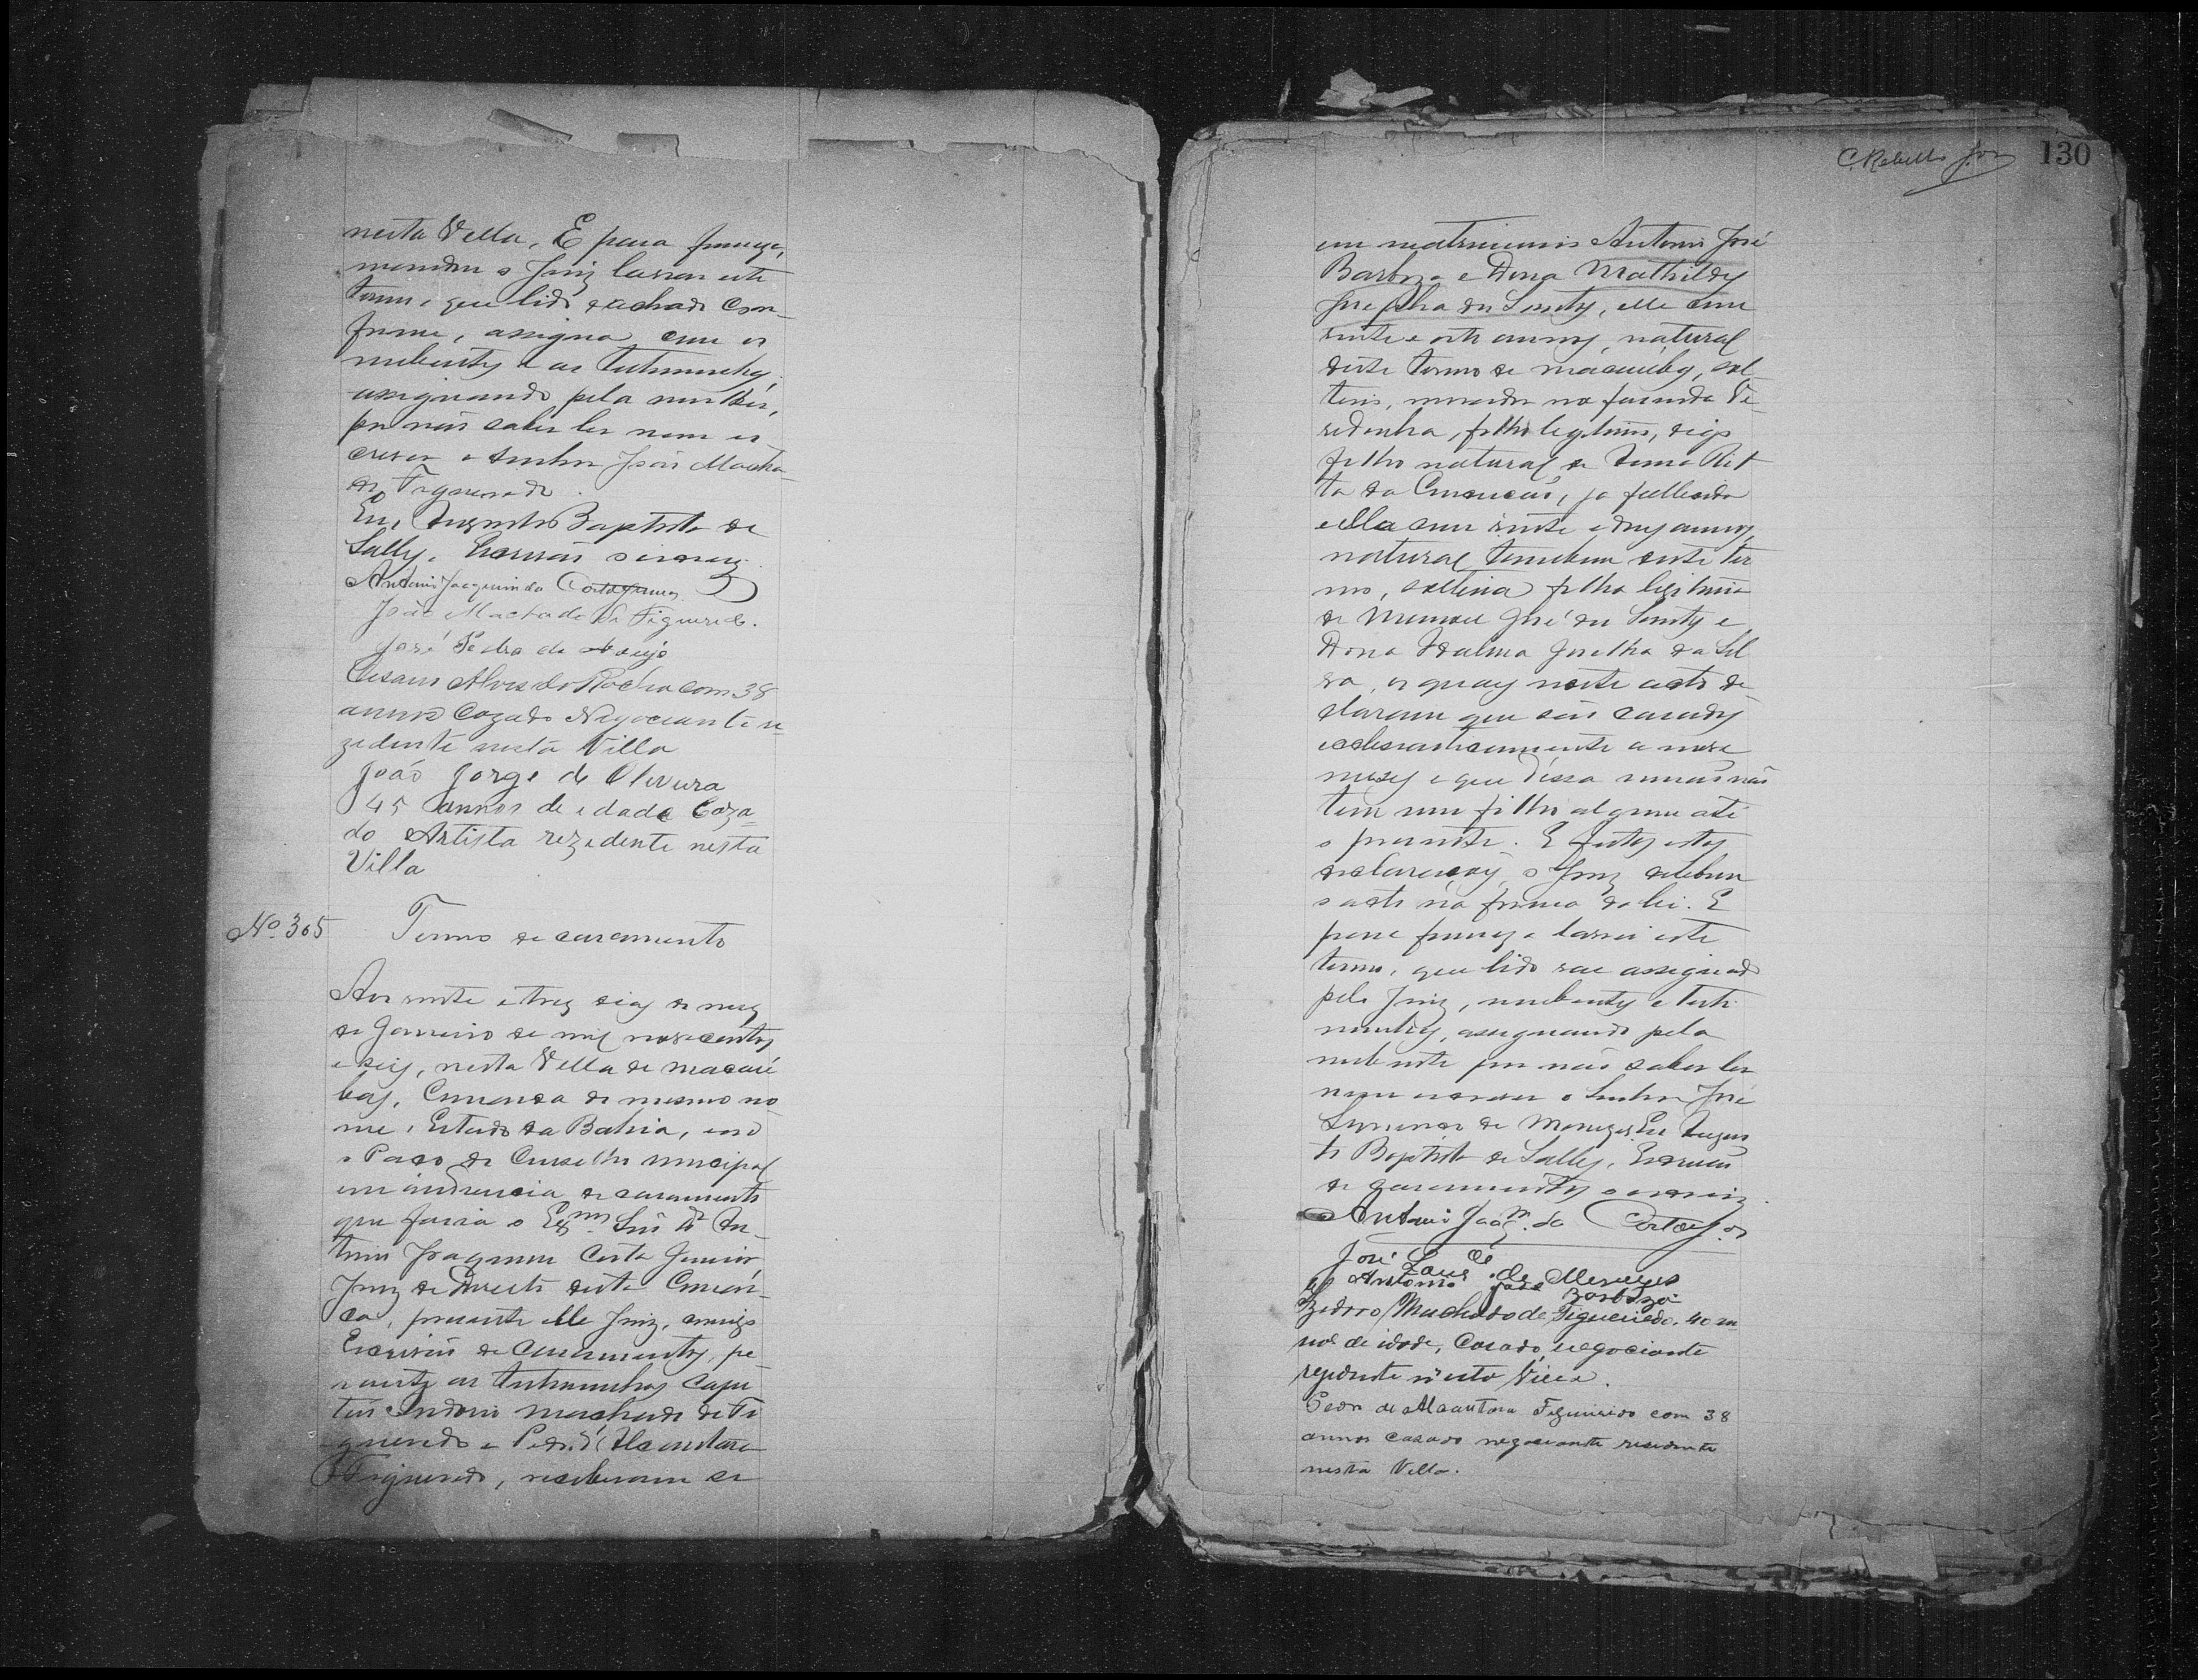 nesta Villa, E para firmeza,
mandou o Juiz lavrar este
termo, que lido e achado con-
forme, assigna com os
nubentes e as testemunhas,
assignando pela mulher,
por não saber ler nem es
crever o Senhor João Macha
do Figueredo.
Eu, Augusto Baptista de
Salles, Escrivão o escrevy.
Antonio Joaquim da Costa Junior
João Machado de Figueredo.
José Pedro de Araujo
Cesario Alves da Rocha com 38
annos Cazado Negociante re
zidente nesta Villa
João Jorge de Oliveira
45 annos de idade Caza-
do Artista rezidente nesta
Villa
Nº 305 Termo de casamento
Aos vinte e tres dias do mez
de Janeiro de mil novecentos
e seis, nesta Villa de Macaú
bas, Comarca do mesmo no
me, Estado da Bahia, em
o Paço do Conselho municipal
em audiencia de casamento
que fazia o Exmo Snr Dr An-
tonio Joaquim Costa Junior,
Juiz de Direito desta Comar-
ca, presente elle Juiz, comigo
Escrivão de Casamentos, pe-
rante as testemunhas Capi
tão Izidorio Machado de Fi
gueredo e Pedro d'Alcantara
Figueredo, receberam se
C. Rebello Jor 130
em matrimonio Antonio José
Barboza e Dona Mathildes
Josepha dos Santos, elle com
vinte e oito annos, natural
deste termo de Macaúbas, sol
teiro, morador na fazenda Ve
redinha, filho legitimo, digo
filho natural de Dona Rit
ta da Conceição, ja fallecida
e ella com vinte e dois annos,
natural tambem deste ter
mo, solteira filha legitima
de Manoel José dos Santos e
Dona Idalina Joselha da Sil
va, os quaes neste acto de
clararam que são casados
ecclesiasticamente a nove
mezes e que dessa união não
tem um filho algum até
o presente. E feitas estas
declarações, o Juiz celebrou
o acto na forma da lei. E
para firmeza lavrei este
termo, que lido vae assignado
pelo Juiz, nubentes e teste
munhas, assignando pela
nubente por não saber ler
nem escrever o Senhor José
de Menezes. Eu Augus
to Baptista de Salles, Escrivão
de Casamentos o escrevi.
Antonio Joaqm da Costa Jor
José de Menezes
Antonio José Barboza
Izidorio Machado de Figueiredo, 40 an
nos de idade, Casado, negociante
rezidente n'esta Villa.
Pedro de Alcantara Figueiredo com 38
annos casado negociante residente
nesta Villa.